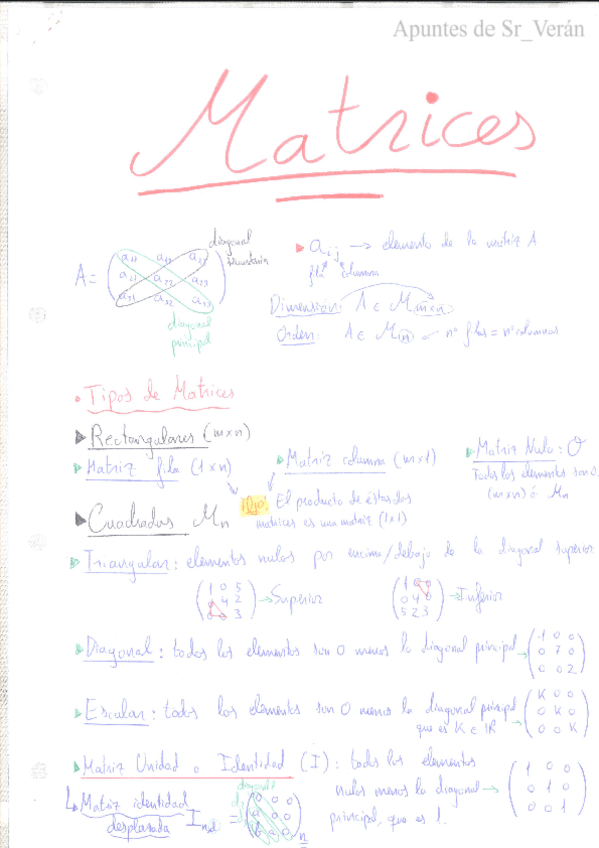 Apuntes de Sr_Verán
Matrices
A = ( a11 a12 a13
a21 a22 a23
a31 a32 a33 )
diagonal secundaria
diagonal principal
▶ aij → elemento de la matriz A
fila columna
Dimensión: A ∈ M m×n
Orden: A ∈ M n → nº filas = nº columnas
• Tipos de Matrices
▶ Rectangulares (m×n)
▶ Matriz fila (1×n)
▶ Matriz columna (m×1)
▶ Matriz Nula: O
Todos los elementos son 0.
(m×n) ó Mn
¡Ojo! El producto de éstas dos
matrices es una matriz (1×1)
▶ Cuadradas Mn
▶ Triangular: elementos nulos por encima/debajo de la diagonal superior
( 1 0 5
0 4 2
0 0 3 ) → Superior
( 1 0 0
0 4 0
5 2 3 ) → Inferior
▶ Diagonal: todos los elementos son 0 menos la diagonal principal → ( -1 0 0
0 7 0
0 0 2 )
▶ Escalar: todos los elementos son 0 menos la diagonal principal
que es K ∈ IR → ( K 0 0
0 K 0
0 0 K )
▶ Matriz Unidad o Identidad (I): todos los elementos
nulos menos la diagonal →
principal, que es 1.
( 1 0 0
0 1 0
0 0 1 )
Matriz identidad
desplazada